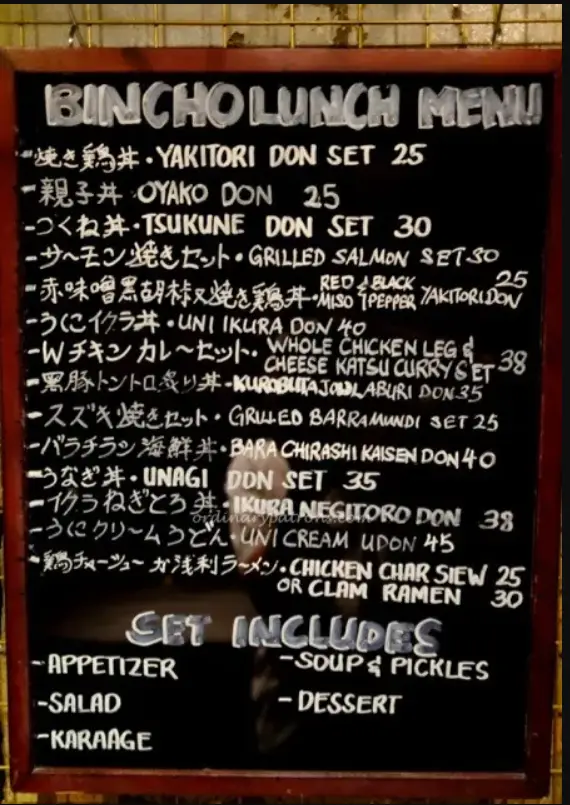 BINCHO LUNCH MENU
-焼き鶏丼・YAKITORI DON SET 25
-親子丼・OYAKO DON 25
-つくね丼・TSUKUNE DON SET 30
-サーモン焼きセット・GRILLED SALMON SET 30
-赤味噌黒胡椒焼き鶏丼・RED MISO & BLACK PEPPER YAKITORI DON 25
-うにイクラ丼・UNI IKURA DON 40
-Wチキンカレーセット・WHOLE CHICKEN LEG &
CHEESE KATSU CURRY SET 38
-黒豚トントロ炙り丼-KUROBUTA JOWL ABURI DON 35
-スズキ焼きセット・GRILLED BARRAMUNDI SET 25
-バラチラシ海鮮丼・BARA CHIRASHI KAISEN DON 40
-うなぎ丼・UNAGI DON SET 35
-イクラねぎとろ丼・IKURA NEGITORO DON 38
ordinarypatrons.com
-うにクリームうどん・UNI CREAM UDON 45
-鶏チャーシュー か浅利ラーメン・CHICKEN CHAR SIEW 25
OR CLAM RAMEN 30
SET INCLUDES
-APPETIZER
-SALAD
-KARAAGE
-SOUP & PICKLES
-DESSERT